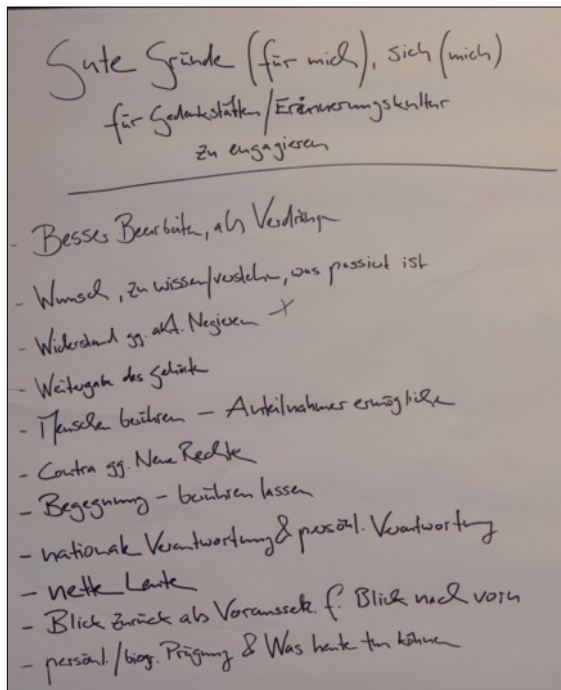 Gute Gründe (für mich), sich (mich)
für Gedenkstätten/Erinnerungskultur
zu engagieren
- Besser Bearbeiten, als Verdrängen
- Wunsch, zu wissen/verstehen, was passiert ist
- Widerstand gg. akt. Negieren +
- Weitergabe des
- Menschen berühren – Anteilnahme ermöglichen
- Contra gg. Neue Rechte
- Begegnung – berühren lassen
- nationale Verantwortung & persönl. Verantwortung
- nette Leute
- Blick zurück als Voraussetz. f. Blick nach vorn
- persönl./biog. Prägung & Was heute tun können